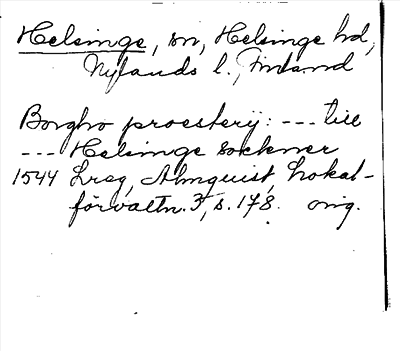 Helsinge, sn, Helsinge hd,
Nylands l., Finland
Borgho proesterij: --- till
--- Helsinge sockner
1544 Lreg, Almquist, Lokal-
förvaltn. 3, s. 178. orig.